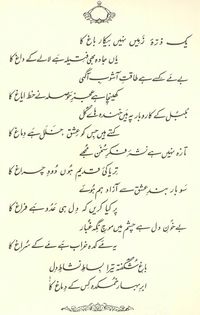 یک ذرۂ زمیں نہیں بیکار باغ کا
یاں جادہ بھی فتیلہ ہے لالے کے داغ کا
بے مے کسے ہے طاقتِ آشوبِ آگہی
کھینچا ہے عجزِ حوصلہ نے خط ایاغ کا
بلبل کے کاروبار پہ ہیں خندہ ہائے گل
کہتے ہیں جس کو عشق خلل ہے دماغ کا
تازہ نہیں ہے نشۂ فکرِ سخن مجھے
تریاکیِ قدیم ہوں دودِ چراغ کا
سو بار بندِ عشق سے آزاد ہم ہوئے
پر کیا کریں کہ دل ہی عدو ہے فراغ کا
بے خونِ دل ہے چشم میں موجِ نگہ غبار
یہ مے کدہ خراب ہے مے کے سراغ کا
باغِ شگفتہ تیرا بساطِ نشاطِ دل
ابرِ بہار خمکدہ کس کے دماغ کا